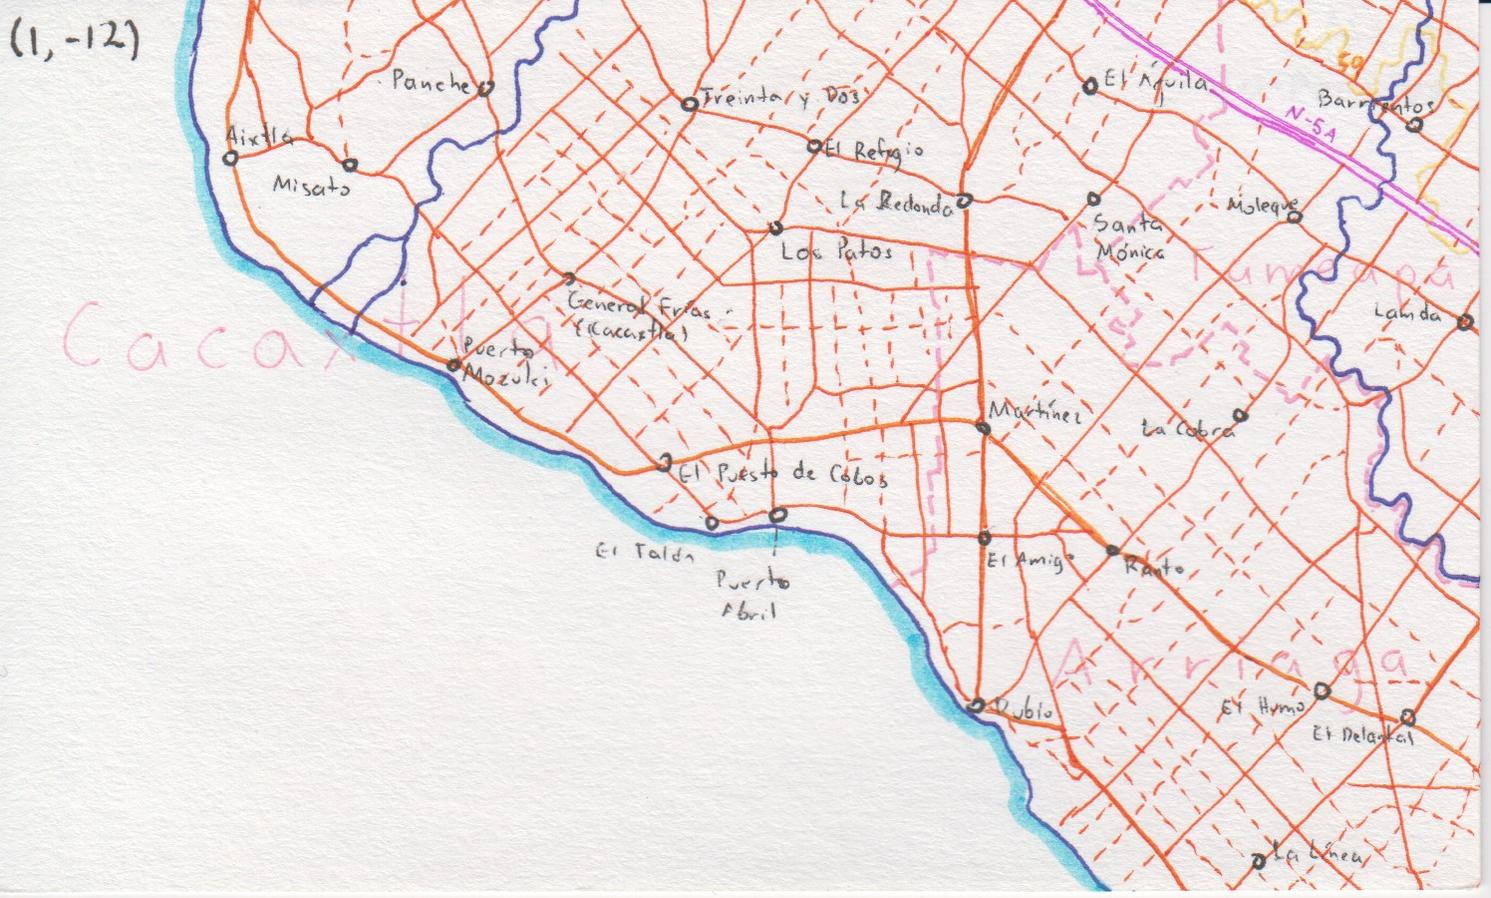 (1, -12)
Panche
Treinta y Dos
El Águila
50
Barrientos
N-5A
Aixtla
Misato
El Refugio
La Redonda
Santa
Mónica
Moleque
Los Patos
Tameapa
General Frías
(Cacaxtla)
Lamda
Cacaxtla
Puerto
Mozuki
Martínez
La Cobra
El Puesto de Cobos
El Talón
Puerto
Abril
El Amigo
Ranto
Arriaga
Rubio
El Humo
El Delantal
La Línea